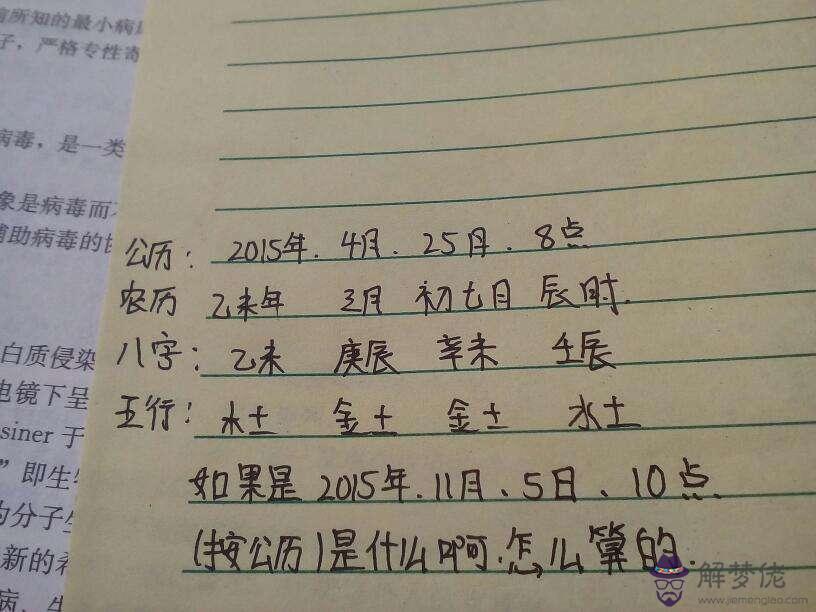 前所知的最小病
子，严格专性寄
病毒，是一类
象是病毒而
辅助病毒的
公历：2015年.4月.25月.8点
农历 乙未年 三月 初七月 辰时.
八字：乙未 庚辰 辛未 壬辰
五行：水土 金土 金土 水土
如果是2015年.11月、5日、10点
(按公历)是什么啊.怎么算的.
白质侵染
电镜下呈
siner 于
”即生
为分子生
新的
病、生
解梦佬
www.jiemenglao.com